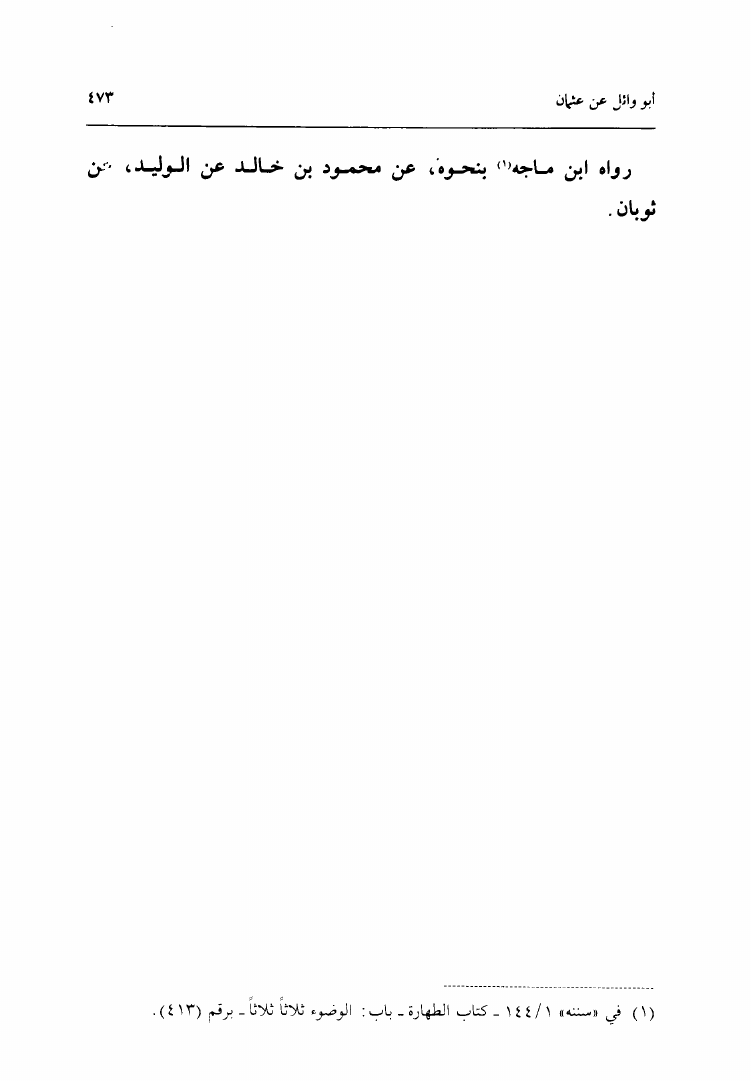 أبو وائل عن عثمان ٤٧٣
رواه ابن ماجه(١) بنحوه، عن محمود بن خالد عن الوليد، عن
ثوبان.
(١) في «سننه» ١/١٤٤ ـ كتاب الطهارة ـ باب: الوضوء ثلاثاً ثلاثاً ـ برقم (٤١٣).